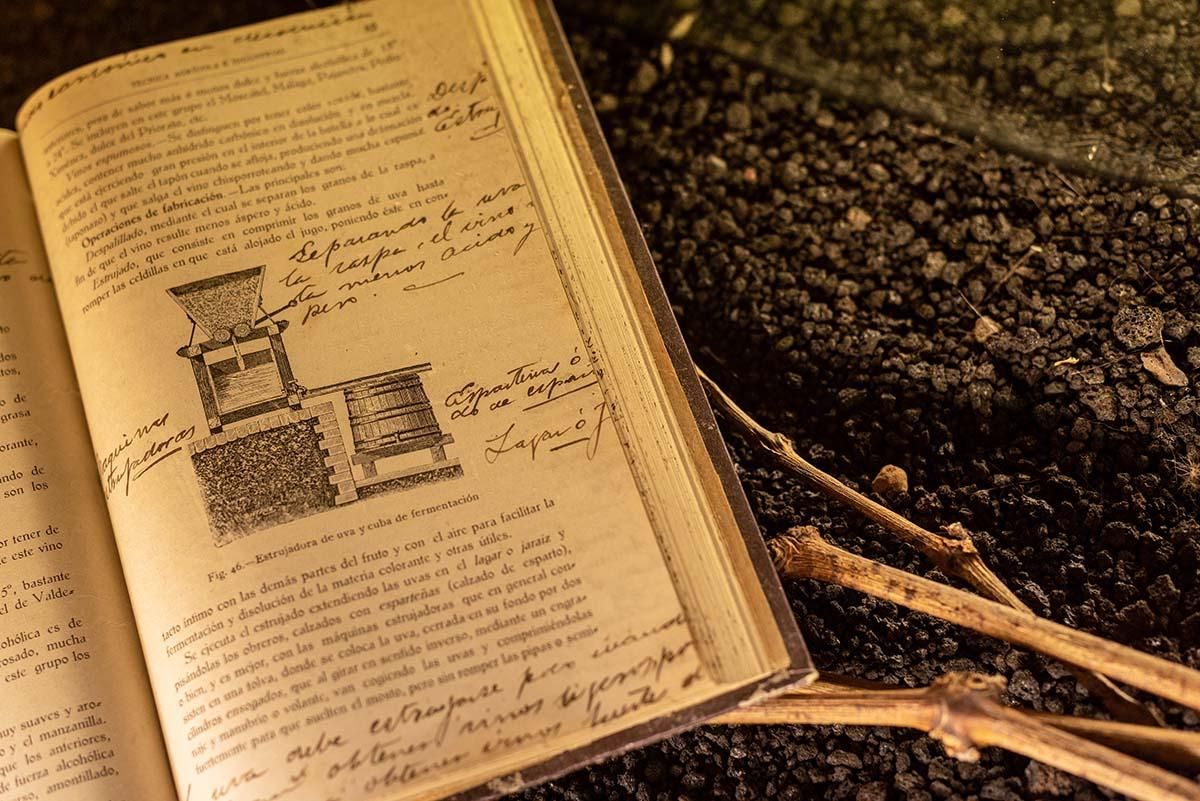 dos
de
grasa
orante,
ndo de
son los
or tener de
e este vino
5º, bastante
el de Valde-
ohólica es de
rosado, mucha
este grupo los
uy suaves y aro-
o y el manzanilla.
que los anteriores,
de fuerza alcohólica
erso, amontillado,
85
TECNICA AGRÍCOLA E INDUSTRIAL
anteriores, pero de sabor más o menos dulce y fuerza alcohólica de 15º
a 24º. Se incluyen en este grupo el Moscatel, Málaga, Pajarete, Pedro
Ximénez, dulce del Priorato, etc.
Vinos espumosos.—Se distinguen por tener color rosado, bastante
acidez, contener mucho anhídrido carbónico en disolución y en mezcla,
que está ejerciendo gran presión en el interior de la botella a la cual es
debido el que salte el tapón cuando se afloja, produciendo una detonación
(taponazo) y que salga el vino chisporroteando y dando mucha espuma.
Operaciones de fabricación.—Las principales son:
Despalillado, mediante el cual se separan los granos de la raspa, a
fin de que el vino resulte menos áspero y ácido.
Estrujado, que consiste en comprimir los granos de uva hasta
romper las celdillas en que está alojado el jugo, poniendo éste en con-
Desp
Estruj
Separando la uva
la raspa, el vino
menos acido y
pero.
aquinas
trujadoras
Esparteñas ó
do de espar
Lagar ó J
Fig. 46.—Estrujadora de uva y cuba de fermentación
tacto íntimo con las demás partes del fruto y con el aire para facilitar la
fermentación y disolución de la materia colorante y otras útiles.
Se ejecuta el estrujado extendiendo las uvas en el lagar o jaraiz y
pisándolas los obreros, calzados con esparteñas (calzado de esparto),
o bien, y es mejor, con las máquinas estrujadoras que en general con-
sisten en una tolva, donde se coloca la uva, cerrada en su fondo por dos
cilindros ensogados, que al girar en sentido inverso, mediante un engra-
naje y manubrio o volante, van cogiendo las uvas y comprimiéndolas
fuertemente para que suelten el mosto, pero sin romper las pipas o semi-
uva debe estrujarse poco cuando
obtener vinos ligeros y po
obtener vinos fuerte